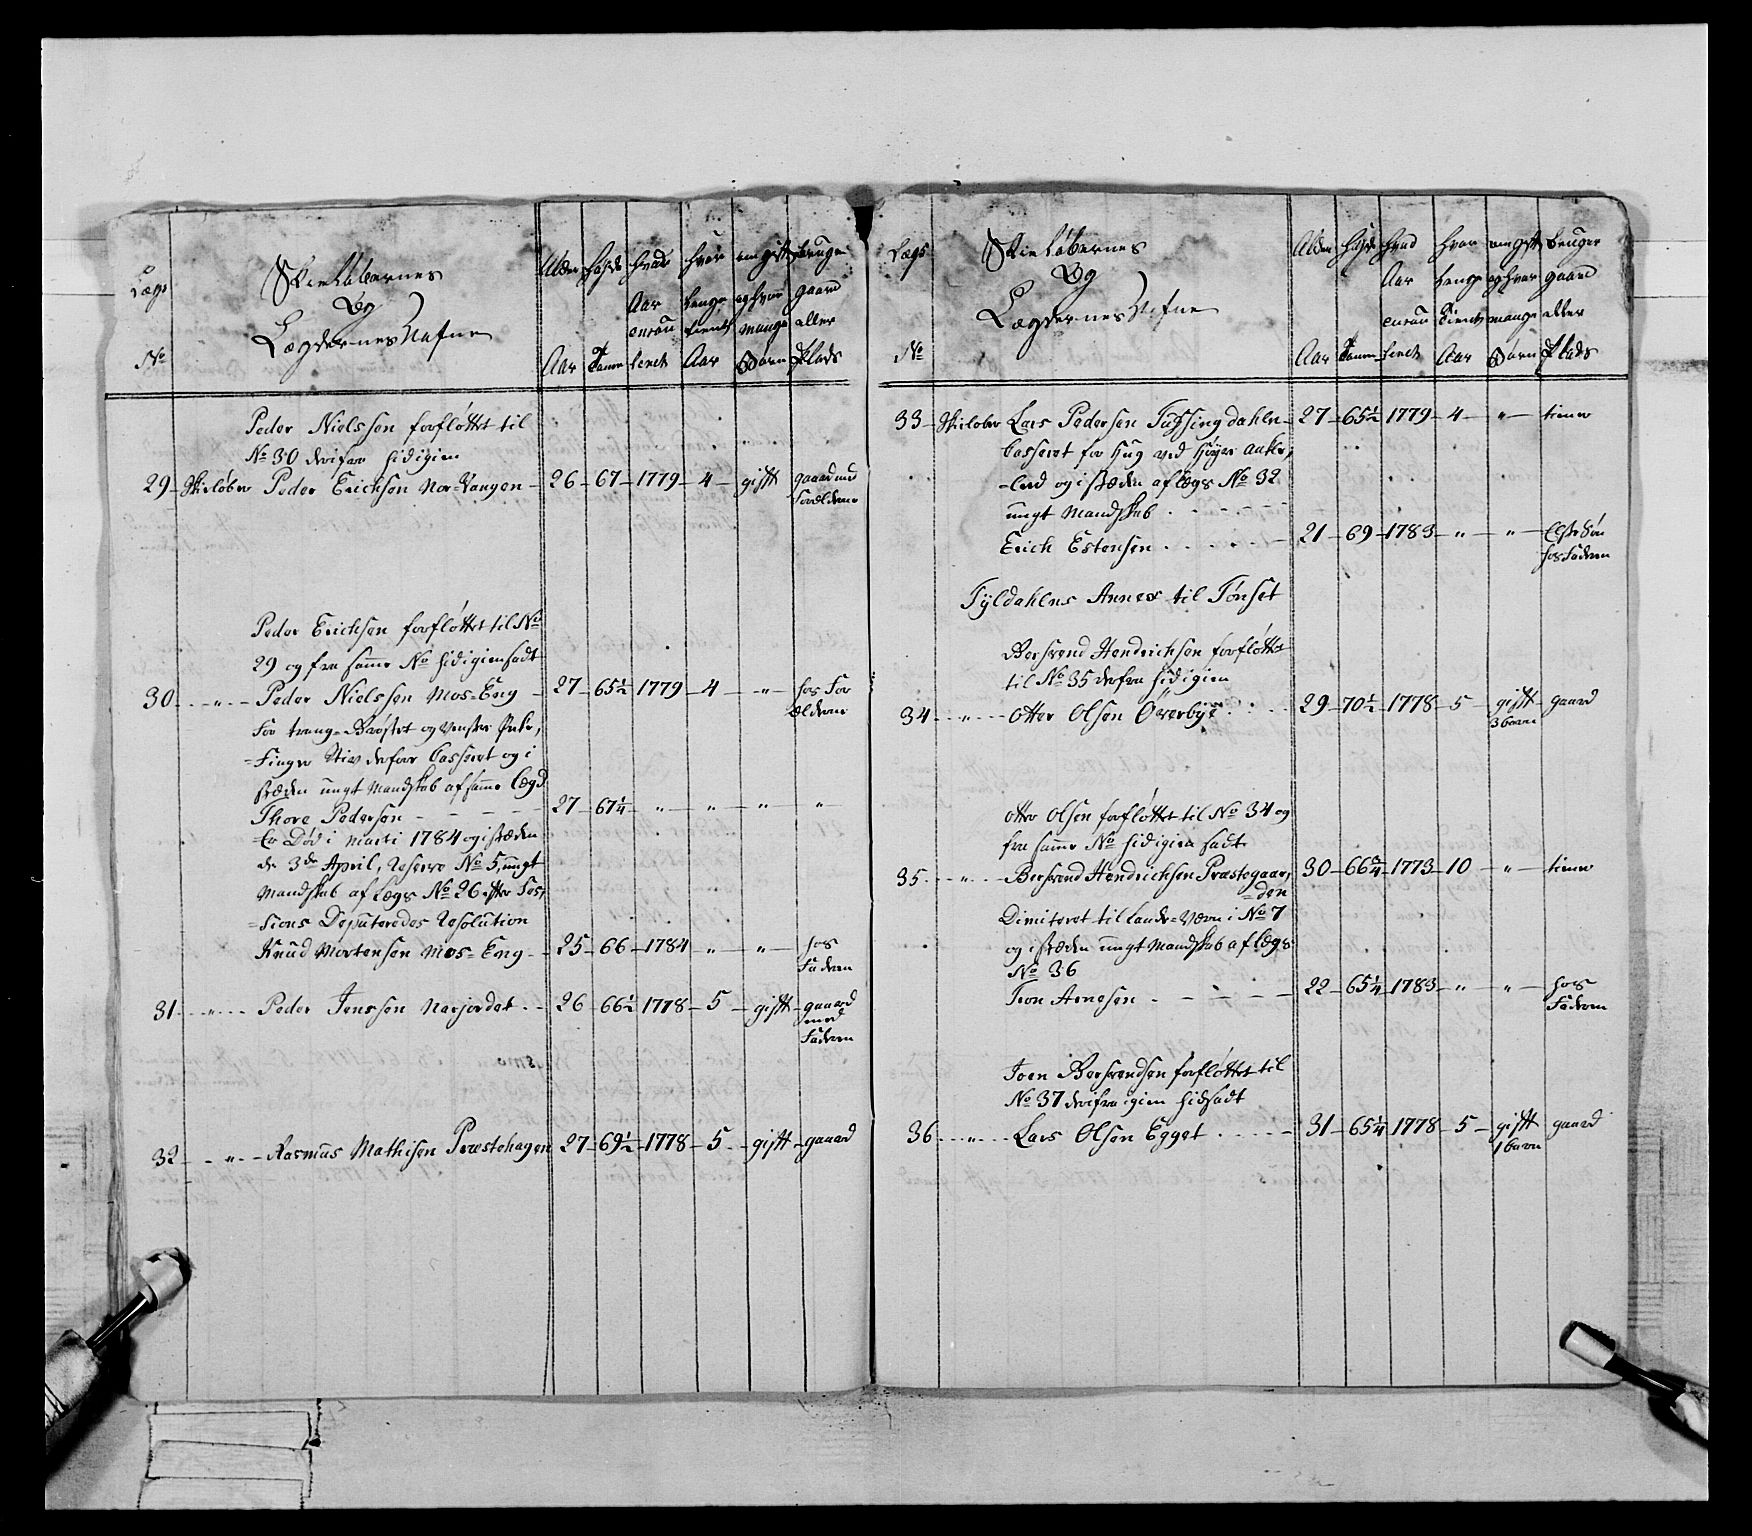 Lægs
No
Skieløbernes
Og
Lægdernes Nafne
Alder
Aar
Høyde
Tomme
Hvad
Aar
enrou
lerest
Hvor
lenge
tient
Aar
om gift
og hvor
mange
Børn
bruger
gaard
eller
Plads
Peder Nielssen forfløttet til
No 30 derifra hidigien
29 Skieløber Peder Erichsen Nor-Vangen 26 67 1779 4 gift gaard med
Forældrene
Peder Erichsen forfløttet til No
29 og fra samme No hidigiensadt
30 " Peder Nielssen Mos=Eng 27 65½ 1779 4 " hos For
ældrene
For trang=Brøstet og Venster
=Finger Stiv derfor Casseret og i
stæden ungt Mandskab af samme Lægd
Thore Pedersen 27 67¼ " " " "
Er Død i Marti 1784 og i stæden
de 3de April, Reserve No 5, ungt
Mandskab af Lægs No 26 efter Ses,
=sions Deputeredes Resolution
Knud Mortensen Mos=Eng 25 66 1784 " " hos
Faderen
31 " Peder Jenssen Narjordet 26 66½ 1778 5 gift gaard
med
Faderen
32 " Rasmus Mathisen Præstehagen 27 69½ 1778 5 gift gaard
Lægs
No
Skieløbernes
Og
Lægdernes Nafne
Alder
Aar
Høyde
Tomme
Hvad
Aar
enrou
lerest
Hvor
lenge
tient
Aar
om gift
og hvor
mange
Børn
bruger
gaard
eller
Plads
33 Skieløber Lars Pedersen Fugsingdahlen 27 65½ 1779 4 " tiener
Casseret for Hug ved Høyre Ankel,
=led og i stæden af Lægs No 32
ungt Mandskab
Erich Estensen 21 69 1783 " " Elste Søn
hos Faderen
Tyldahlns Annex til Tønset
Bersvend Hendrichsen forfløttet
til No 35 derfra hidigien
34 " Otter Olsen Øverbye 29 70½ 1778 5 gift gaard
3 børn
Otter Olsen forfløttet til No 34 og
fra samme No hidigien sadt
35 " Bersvend Hendrichsen Præstegaar, 30 66¾ 1773 10 " tiener
=den
Dimiteret til Lande=Værn i No 7
og i stæden ungt Mandskab af Lægs
No 36
Tron Arnesen 22 65¼ 1783 " " hos
Faderen
Joen Bersvendsen forfløttet til
No 37 derifra igien hidsadt
36 " Lars Olsen Egget 31 65¼ 1778 5 gift gaard
1 barn